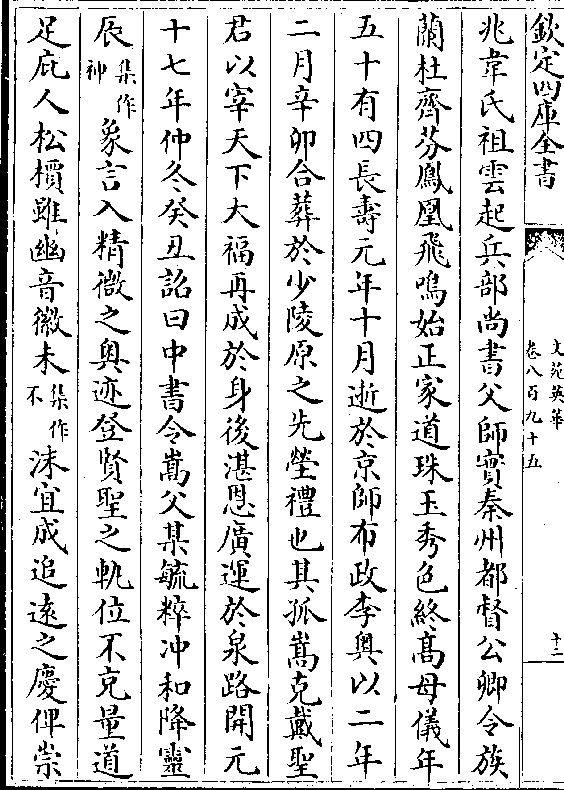 欽定四庫全書
文苑英華
卷八百九十五
十二
兆韋氏祖雲起兵部尚書父師實秦州都督公卿令族
蘭杜齊芬鳳凰飛鳴始正家道珠玉秀色終髙母儀年
五十有四長壽元年十月逝於京師布政李輿以二年
二月辛卯合葬於少陵原之先塋禮也其孤嵩克戴聖
君以宰天下大福再成於身後湛恩廣運於泉路開元
十七年仲冬癸丑詔曰中書令嵩父某毓粹冲和降靈
辰集作神象言入精微之奥迹登賢聖之軌位不充量道
足庇人松檟雖幽音徽未集作不沬宜成追逺之慶俾崇